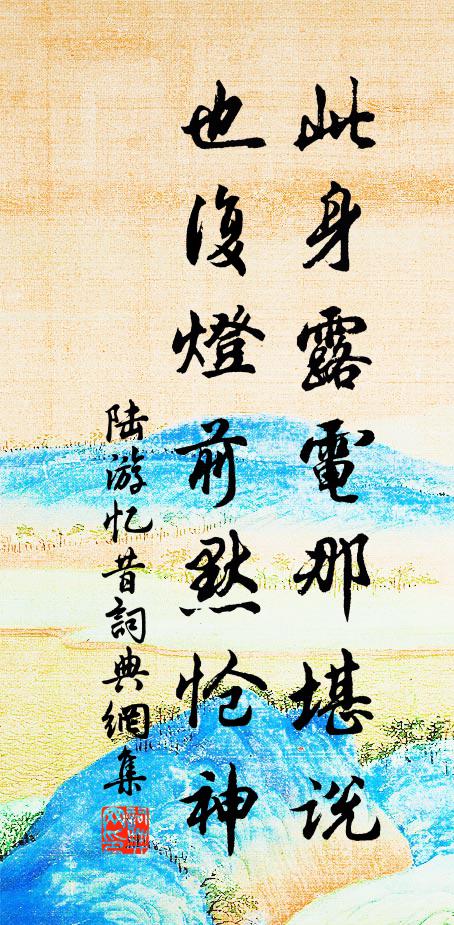 此身露電那堪説
也復燈前默怆神
陆游忆昔詞典網集